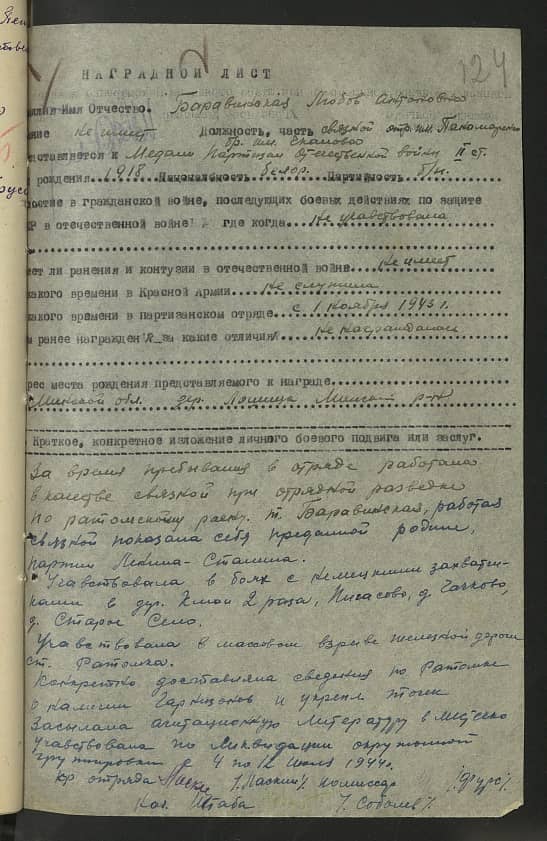 124
НАГРАДНОЙ ЛИСТ
милия Имя Отчество. Баравинская Любовь Антоновна
ание не имеет Должность, часть связной отр. им. Панамарен
бр. им. Сталина
дставляется к Медали Партизан Отечественной войны II ст.
рождения 1918 Национальность белор. Партийность б/п.
астие в гражданской войне, последующих боевых действиях по защите
СР в отечественной войне где когда не учавствовала
еет ли ранения и контузии в отечественной войне не имеет
какого времени в Красной Армии не служила
какого времени в партизанском отряде с 1 ноября 1943 г.
м ранее награжден за какие отличия не награждалась
рес места рождения представляемого к награде
Минской обл. дер. Минский р-н
Краткое, конкретное изложение личного боевого подвига или заслуг.
За время пребывания в отряде работала
в качестве связной при отрядной разведке
по ратомскому т. Баравинская, работая
связной показала себя преданной родине,
партии Ленина-Сталина.
Учавствовала в боях с немецкими захватчи-
ками в дер. 2 раза, д.
д. Старое Село.
Учавствовала в массовом взрыве железной дороги
ст. Ратомка.
Конкретно доставляла сведения по Ратомке
о наличии гарнизонов и укрепл точек
Засылала агитационную литературу в местечко
Учавствовала по ликвидации окруженной
группировки с 4 по 12 июля 1944 г.
кр отряда комиссар
Нач. Штаба / Соболев /